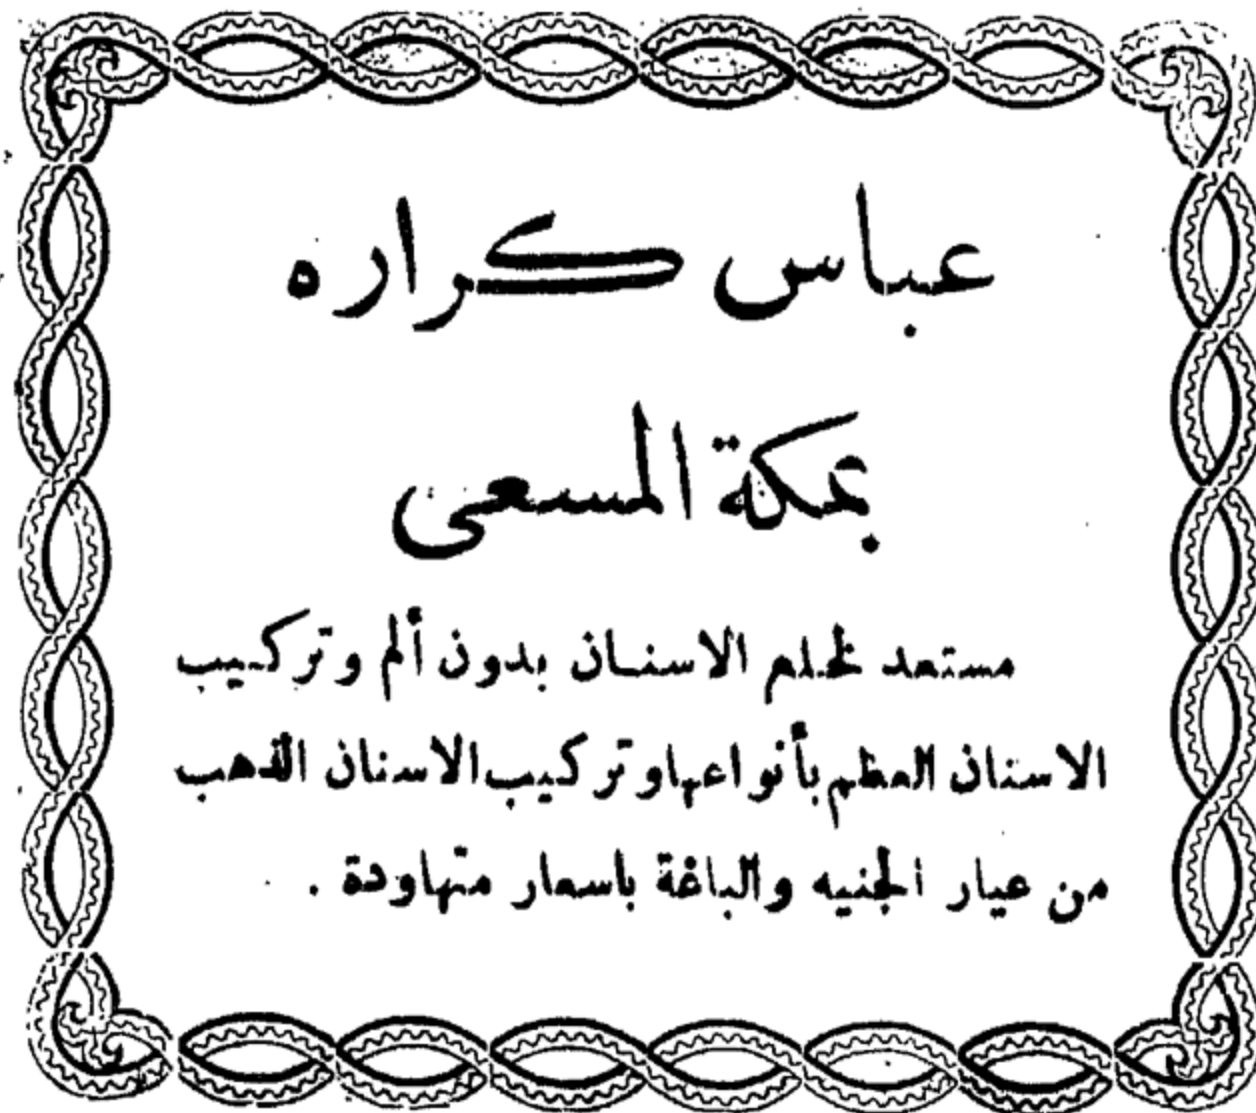 عباس كراره
بمكة المسعى
مستعد لخلع الاسنان بدون ألم وتركيب
الاسنان العظم بأنواعها وتركيب الاسنان الذهب
من عيار الجنيه والباغة باسعار متهاودة .